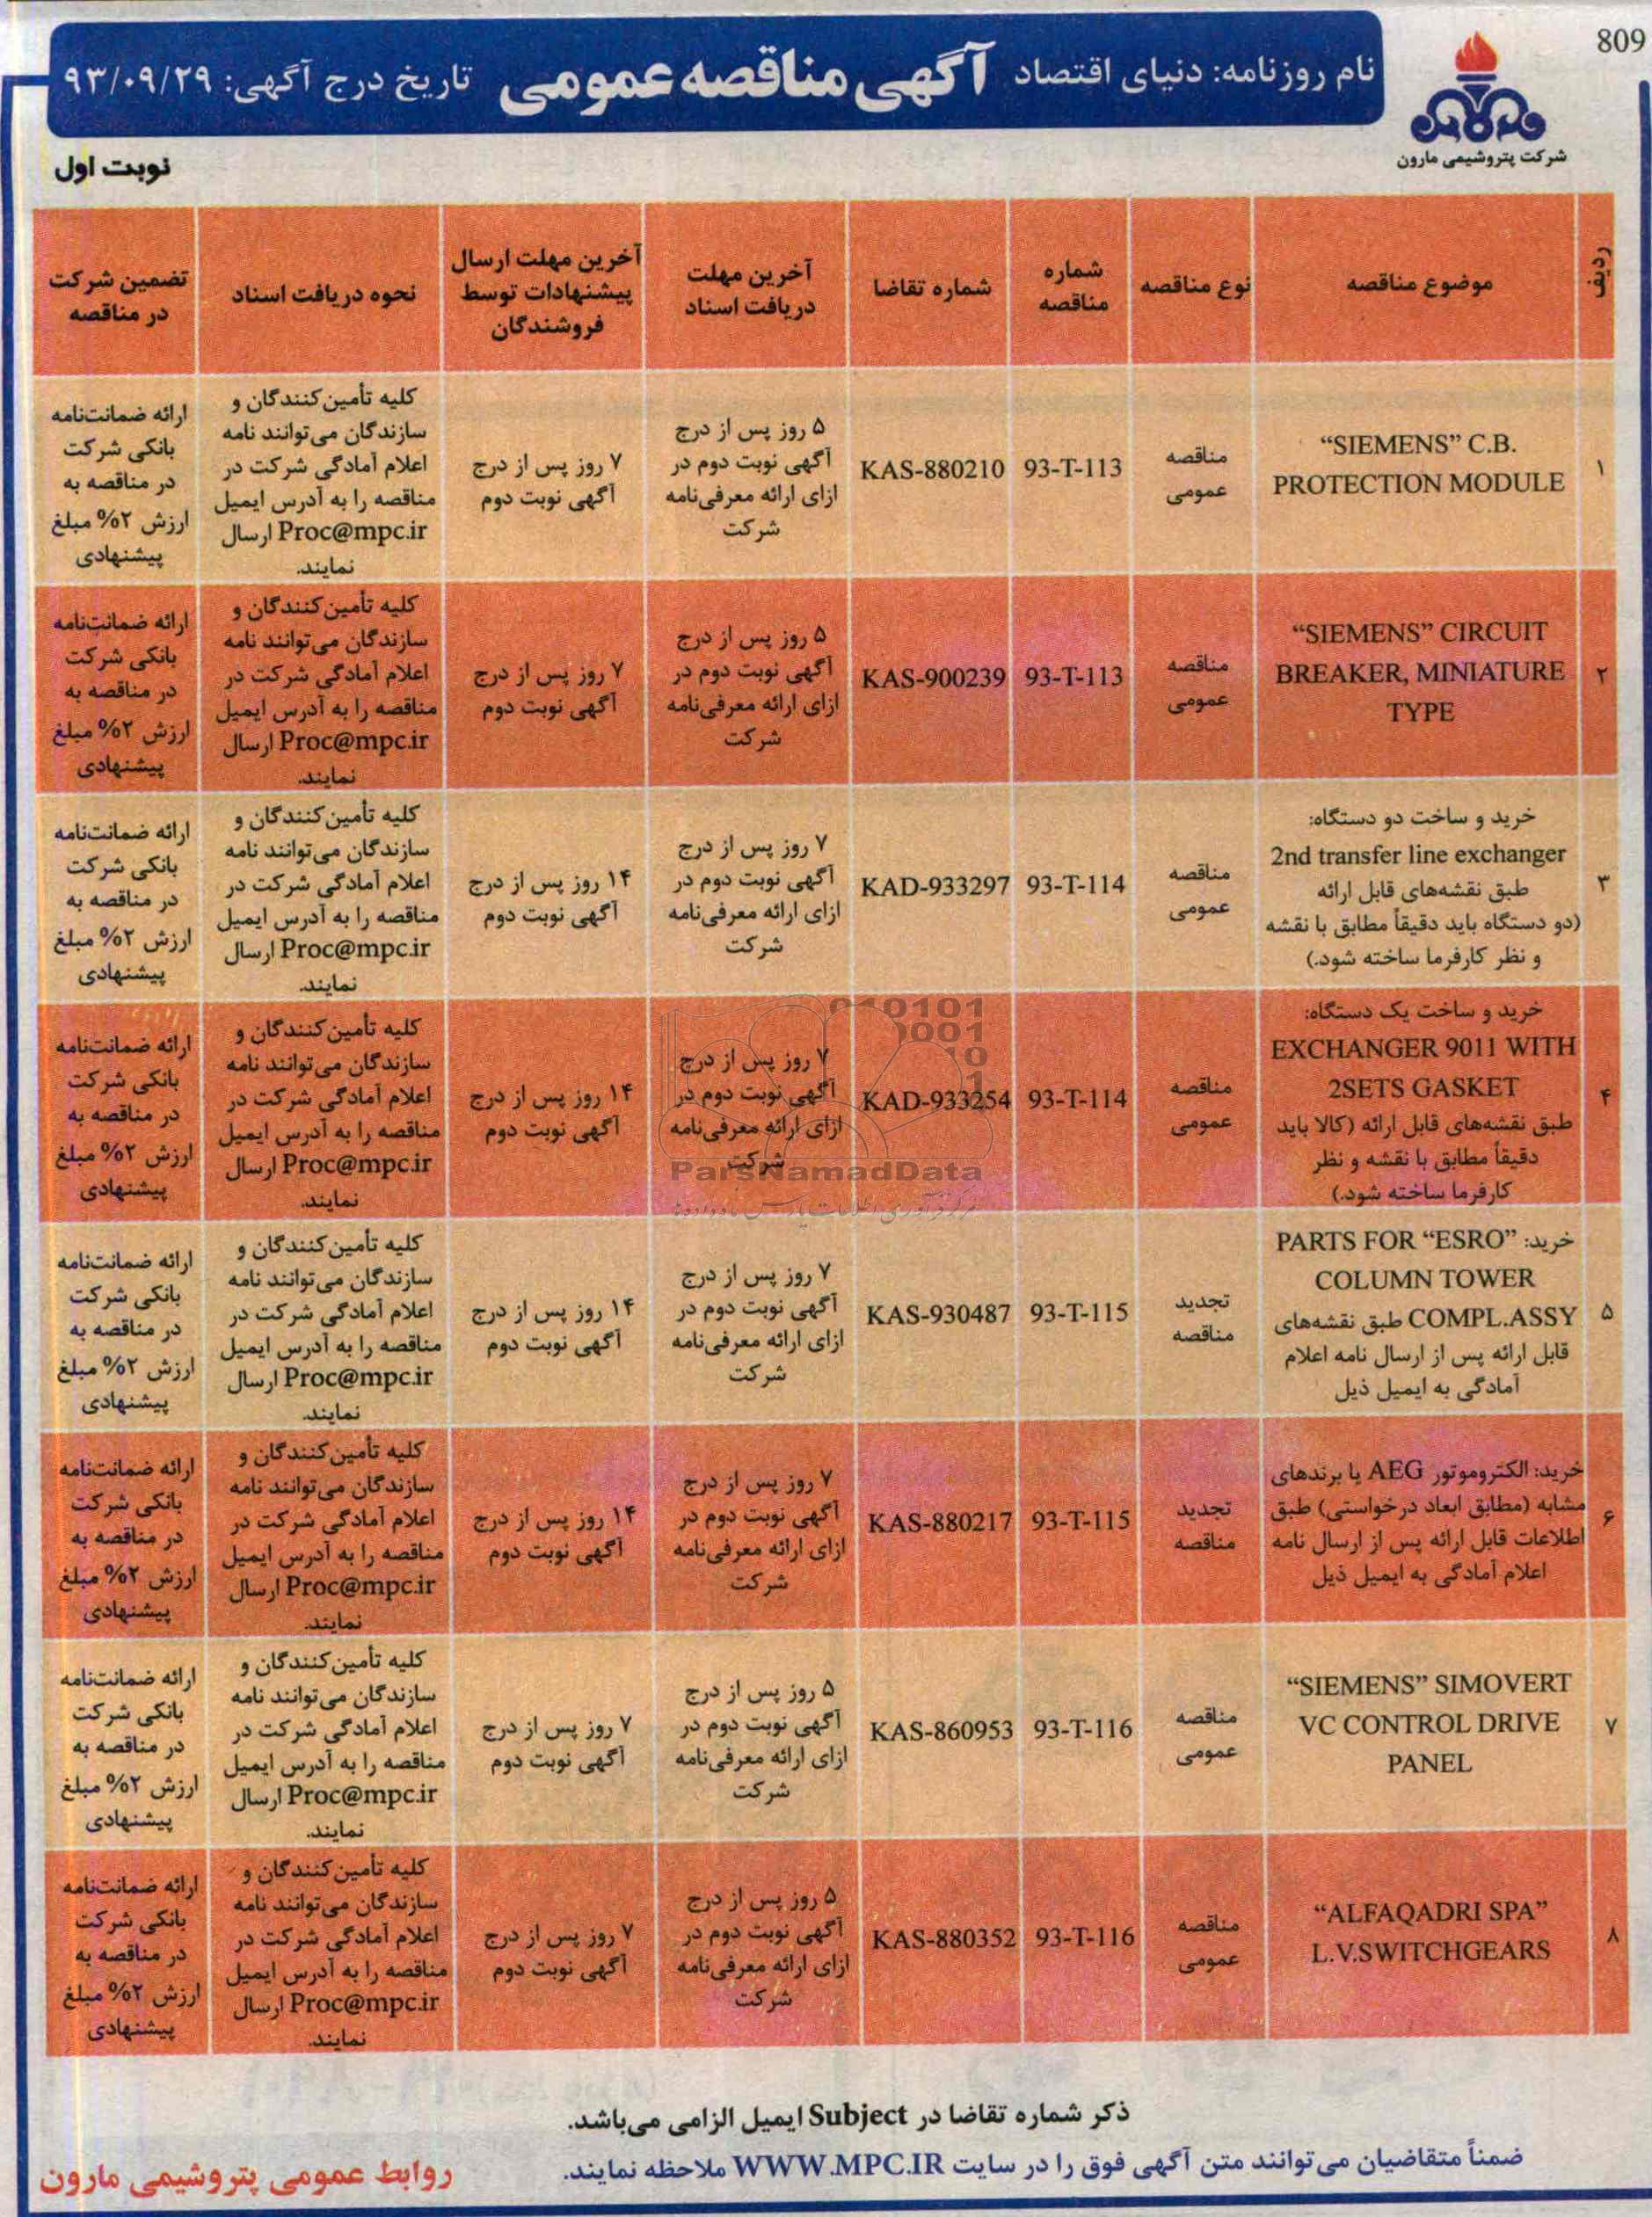 809
شرکت پتروشیمی مارون
نام روزنامه: دنیای اقتصاد آگهی مناقصه عمومی تاریخ درج آگهی: ۹۳/۰۹/۲۹
نوبت اول
ردیف
موضوع مناقصه
نوع مناقصه
شماره
مناقصه
شماره تقاضا
آخرین مهلت
دریافت اسناد
آخرین مهلت ارسال
پیشنهادات توسط
فروشندگان
نحوه دریافت اسناد
تضمین شرکت
در مناقصه
۱
“SIEMENS” C.B.
PROTECTION MODULE
مناقصه
عمومی
93-T-113
KAS-880210
۵ روز پس از درج
آگهی نوبت دوم در
ازای ارائه معرفی‌نامه
شرکت
۷ روز پس از درج
آگهی نوبت دوم
کلیه تأمین‌کنندگان و
سازندگان می‌توانند نامه
اعلام آمادگی شرکت در
مناقصه را به آدرس ایمیل
Proc@mpc.ir ارسال
نمایند.
ارائه ضمانت‌نامه
بانکی شرکت
در مناقصه به
ارزش ۲% مبلغ
پیشنهادی
۲
“SIEMENS” CIRCUIT
BREAKER, MINIATURE
TYPE
مناقصه
عمومی
93-T-113
KAS-900239
۵ روز پس از درج
آگهی نوبت دوم در
ازای ارائه معرفی‌نامه
شرکت
۷ روز پس از درج
آگهی نوبت دوم
کلیه تأمین‌کنندگان و
سازندگان می‌توانند نامه
اعلام آمادگی شرکت در
مناقصه را به آدرس ایمیل
Proc@mpc.ir ارسال
نمایند.
ارائه ضمانت‌نامه
بانکی شرکت
در مناقصه به
ارزش ۲% مبلغ
پیشنهادی
۳
خرید و ساخت دو دستگاه:
2nd transfer line exchanger
طبق نقشه‌های قابل ارائه
(دو دستگاه باید دقیقاً مطابق با نقشه
و نظر کارفرما ساخته شود.)
مناقصه
عمومی
93-T-114
KAD-933297
۷ روز پس از درج
آگهی نوبت دوم در
ازای ارائه معرفی‌نامه
شرکت
۱۴ روز پس از درج
آگهی نوبت دوم
کلیه تأمین‌کنندگان و
سازندگان می‌توانند نامه
اعلام آمادگی شرکت در
مناقصه را به آدرس ایمیل
Proc@mpc.ir ارسال
نمایند.
ارائه ضمانت‌نامه
بانکی شرکت
در مناقصه به
ارزش ۲% مبلغ
پیشنهادی
۴
خرید و ساخت یک دستگاه:
EXCHANGER 9011 WITH
2SETS GASKET
طبق نقشه‌های قابل ارائه (کالا باید
دقیقاً مطابق با نقشه و نظر
کارفرما ساخته شود.)
مناقصه
عمومی
93-T-114
KAD-933254
۷ روز پس از درج
آگهی نوبت دوم در
ازای ارائه معرفی‌نامه
شرکت
۱۴ روز پس از درج
آگهی نوبت دوم
کلیه تأمین‌کنندگان و
سازندگان می‌توانند نامه
اعلام آمادگی شرکت در
مناقصه را به آدرس ایمیل
Proc@mpc.ir ارسال
نمایند.
ارائه ضمانت‌نامه
بانکی شرکت
در مناقصه به
ارزش ۲% مبلغ
پیشنهادی
ParsNamadData
۵
خرید: PARTS FOR “ESRO”
COLUMN TOWER
COMPL.ASSY طبق نقشه‌های
قابل ارائه پس از ارسال نامه اعلام
آمادگی به ایمیل ذیل
تجدید
مناقصه
93-T-115
KAS-930487
۷ روز پس از درج
آگهی نوبت دوم در
ازای ارائه معرفی‌نامه
شرکت
۱۴ روز پس از درج
آگهی نوبت دوم
کلیه تأمین‌کنندگان و
سازندگان می‌توانند نامه
اعلام آمادگی شرکت در
مناقصه را به آدرس ایمیل
Proc@mpc.ir ارسال
نمایند.
ارائه ضمانت‌نامه
بانکی شرکت
در مناقصه به
ارزش ۲% مبلغ
پیشنهادی
۶
خرید: الکتروموتور AEG یا برندهای
مشابه (مطابق ابعاد درخواستی) طبق
اطلاعات قابل ارائه پس از ارسال نامه
اعلام آمادگی به ایمیل ذیل
تجدید
مناقصه
93-T-115
KAS-880217
۷ روز پس از درج
آگهی نوبت دوم در
ازای ارائه معرفی‌نامه
شرکت
۱۴ روز پس از درج
آگهی نوبت دوم
کلیه تأمین‌کنندگان و
سازندگان می‌توانند نامه
اعلام آمادگی شرکت در
مناقصه را به آدرس ایمیل
Proc@mpc.ir ارسال
نمایند.
ارائه ضمانت‌نامه
بانکی شرکت
در مناقصه به
ارزش ۲% مبلغ
پیشنهادی
۷
“SIEMENS” SIMOVERT
VC CONTROL DRIVE
PANEL
مناقصه
عمومی
93-T-116
KAS-860953
۵ روز پس از درج
آگهی نوبت دوم در
ازای ارائه معرفی‌نامه
شرکت
۷ روز پس از درج
آگهی نوبت دوم
کلیه تأمین‌کنندگان و
سازندگان می‌توانند نامه
اعلام آمادگی شرکت در
مناقصه را به آدرس ایمیل
Proc@mpc.ir ارسال
نمایند.
ارائه ضمانت‌نامه
بانکی شرکت
در مناقصه به
ارزش ۲% مبلغ
پیشنهادی
۸
“ALFAQADRI SPA”
L.V.SWITCHGEARS
مناقصه
عمومی
93-T-116
KAS-880352
۵ روز پس از درج
آگهی نوبت دوم در
ازای ارائه معرفی‌نامه
شرکت
۷ روز پس از درج
آگهی نوبت دوم
کلیه تأمین‌کنندگان و
سازندگان می‌توانند نامه
اعلام آمادگی شرکت در
مناقصه را به آدرس ایمیل
Proc@mpc.ir ارسال
نمایند.
ارائه ضمانت‌نامه
بانکی شرکت
در مناقصه به
ارزش ۲% مبلغ
پیشنهادی
ذکر شماره تقاضا در Subject ایمیل الزامی می‌باشد.
ضمناً متقاضیان می‌توانند متن آگهی فوق را در سایت WWW.MPC.IR ملاحظه نمایند.
روابط عمومی پتروشیمی مارون